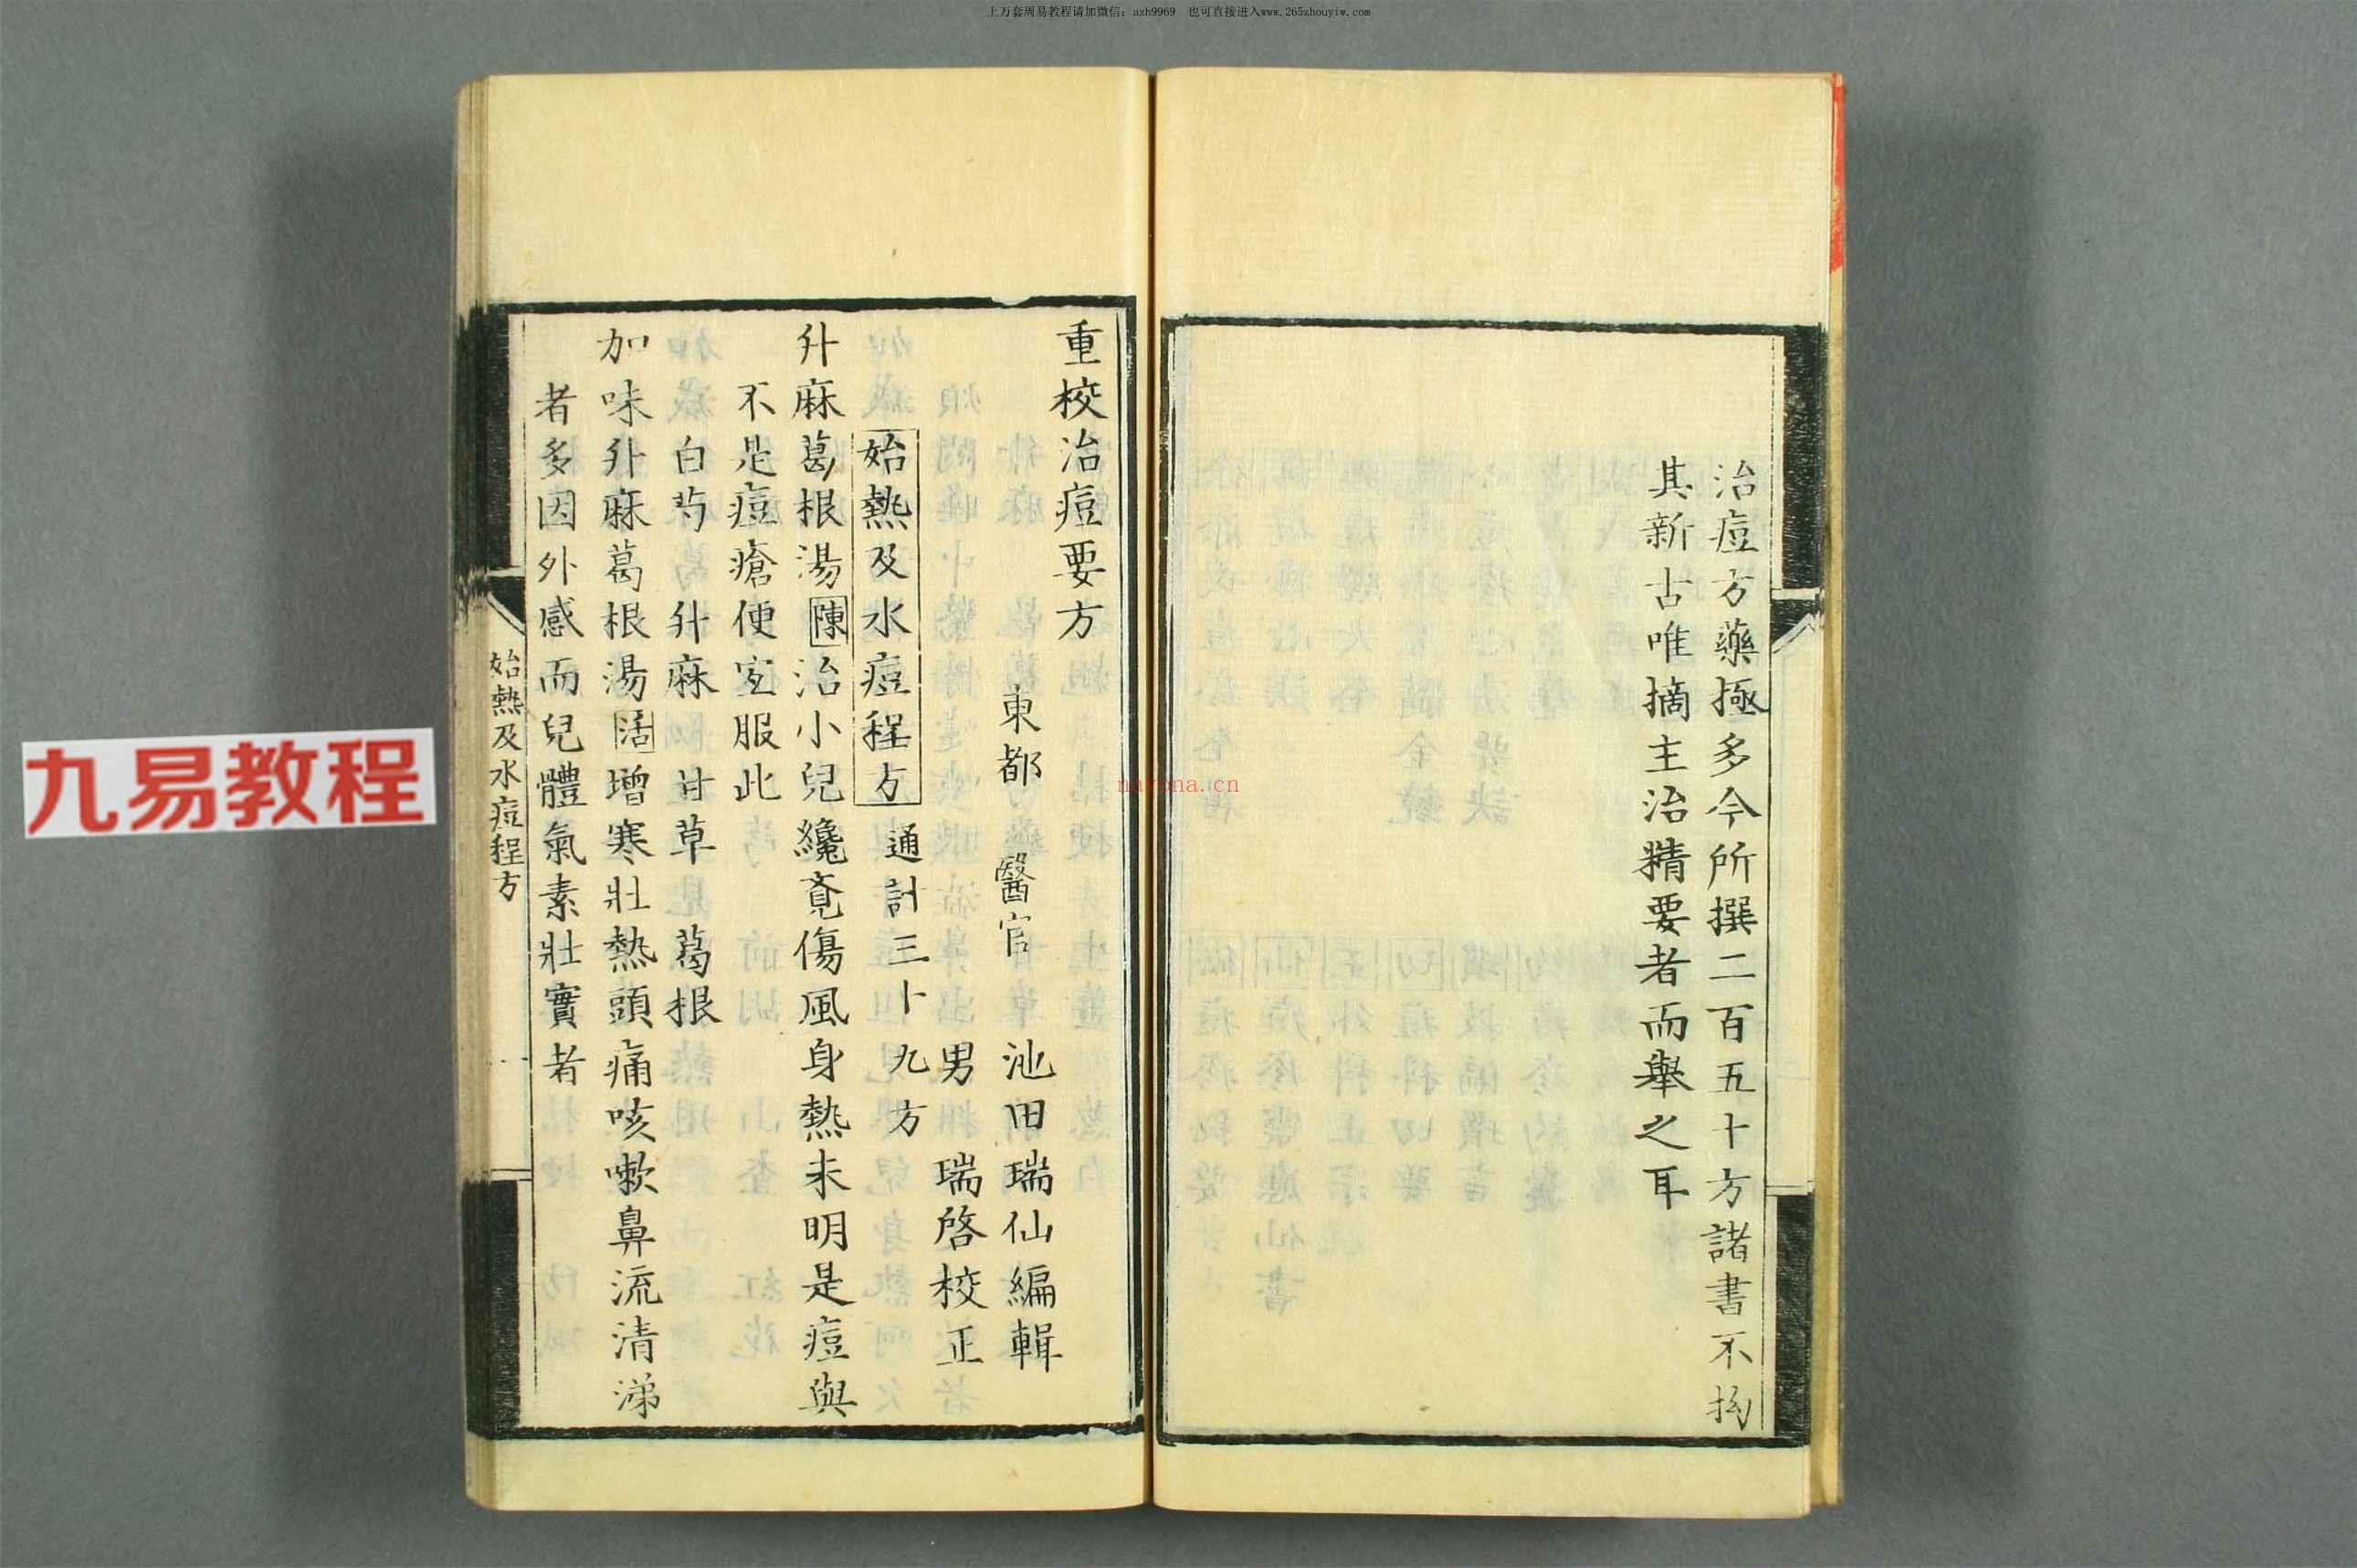 上万套周易教程请加微信：azh9969　也可直接进入www.265zhouyiw.com
治痘方藥極多今所撰二百五十方諸書不拘
其新古唯摘主治精要者而舉之耳
重校治痘要方
東都　醫官　池田瑞仙編輯
男　瑞啓校正
始熱及水痘程方　通計三十九方
升麻葛根湯陳治小兒纔覔傷風身熱未明是痘與
不是痘瘡便宐服此
白芍　升麻　甘草　葛根
加味升麻葛根湯活增寒壯熱頭痛咳嗽鼻流清涕
者多因外感而兒體氣素壯實者
始熱及水痘程方
九易教程
nayona.cn